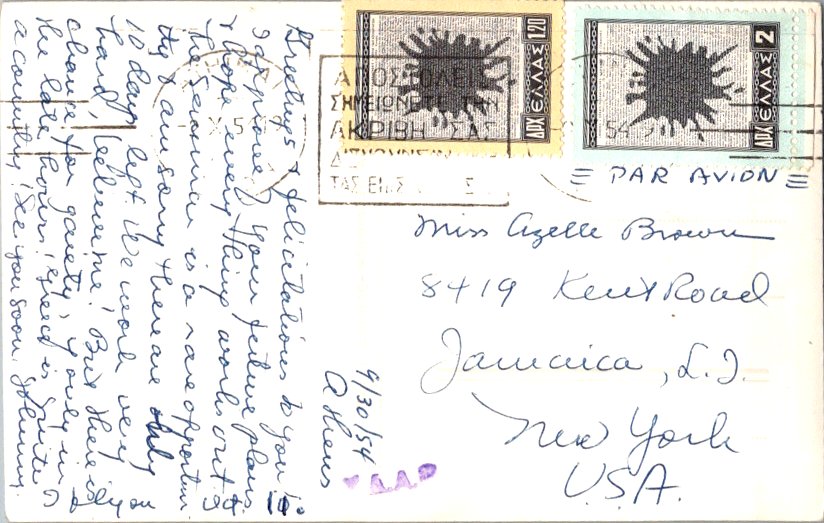 Greetings & felicitations to you in
your future plans.
I hope every thing works out &
is a rare opportun-
ity. I am sorry there are only
10 days left. We work very
hard, believe me! But there is
chance for gaiety, if only in
the late hours! Greece is quite
a country! See you soon. Johnny.
9/30/54
Athens
ΔΡΧ ΕΛΛΑΣ 1.20
ΔΡΧ ΕΛΛΑΣ 2
ΑΠΟΣΤΟΛΕΙΣ
ΣΗΜΕΙΩΝΕΤΕ ΤΗΝ
ΑΚΡΙΒΗ ΣΑΣ
ΤΑΣ
54
PAR AVION
Miss Azelle Brown
8419 Kent Road
Jamaica, L.I.
New York
U.S.A.